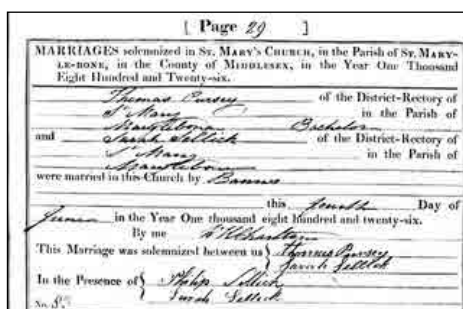 [ Page 29 ]
MARRIAGES solemnized in ST. MARY'S CHURCH, in the Parish of ST. MARY-
LE-BONE, in the County of MIDDLESEX, in the Year One Thousand
Eight Hundred and Twenty-six.
Thomas Pursey of the District-Rectory of
St Mary in the Parish of
Marylebone Bachelor
and Sarah Sellick of the District-Rectory of
St Mary in the Parish of
Marylebone
were married in this Church by Banns
this fourth Day of
June in the Year One thousand eight hundred and twenty-six.
By me
This Marriage was solemnized between us Thomas Pursey
Sarah Sellick
In the Presence of Philip Sellick
Sarah Sellick
No. 8.